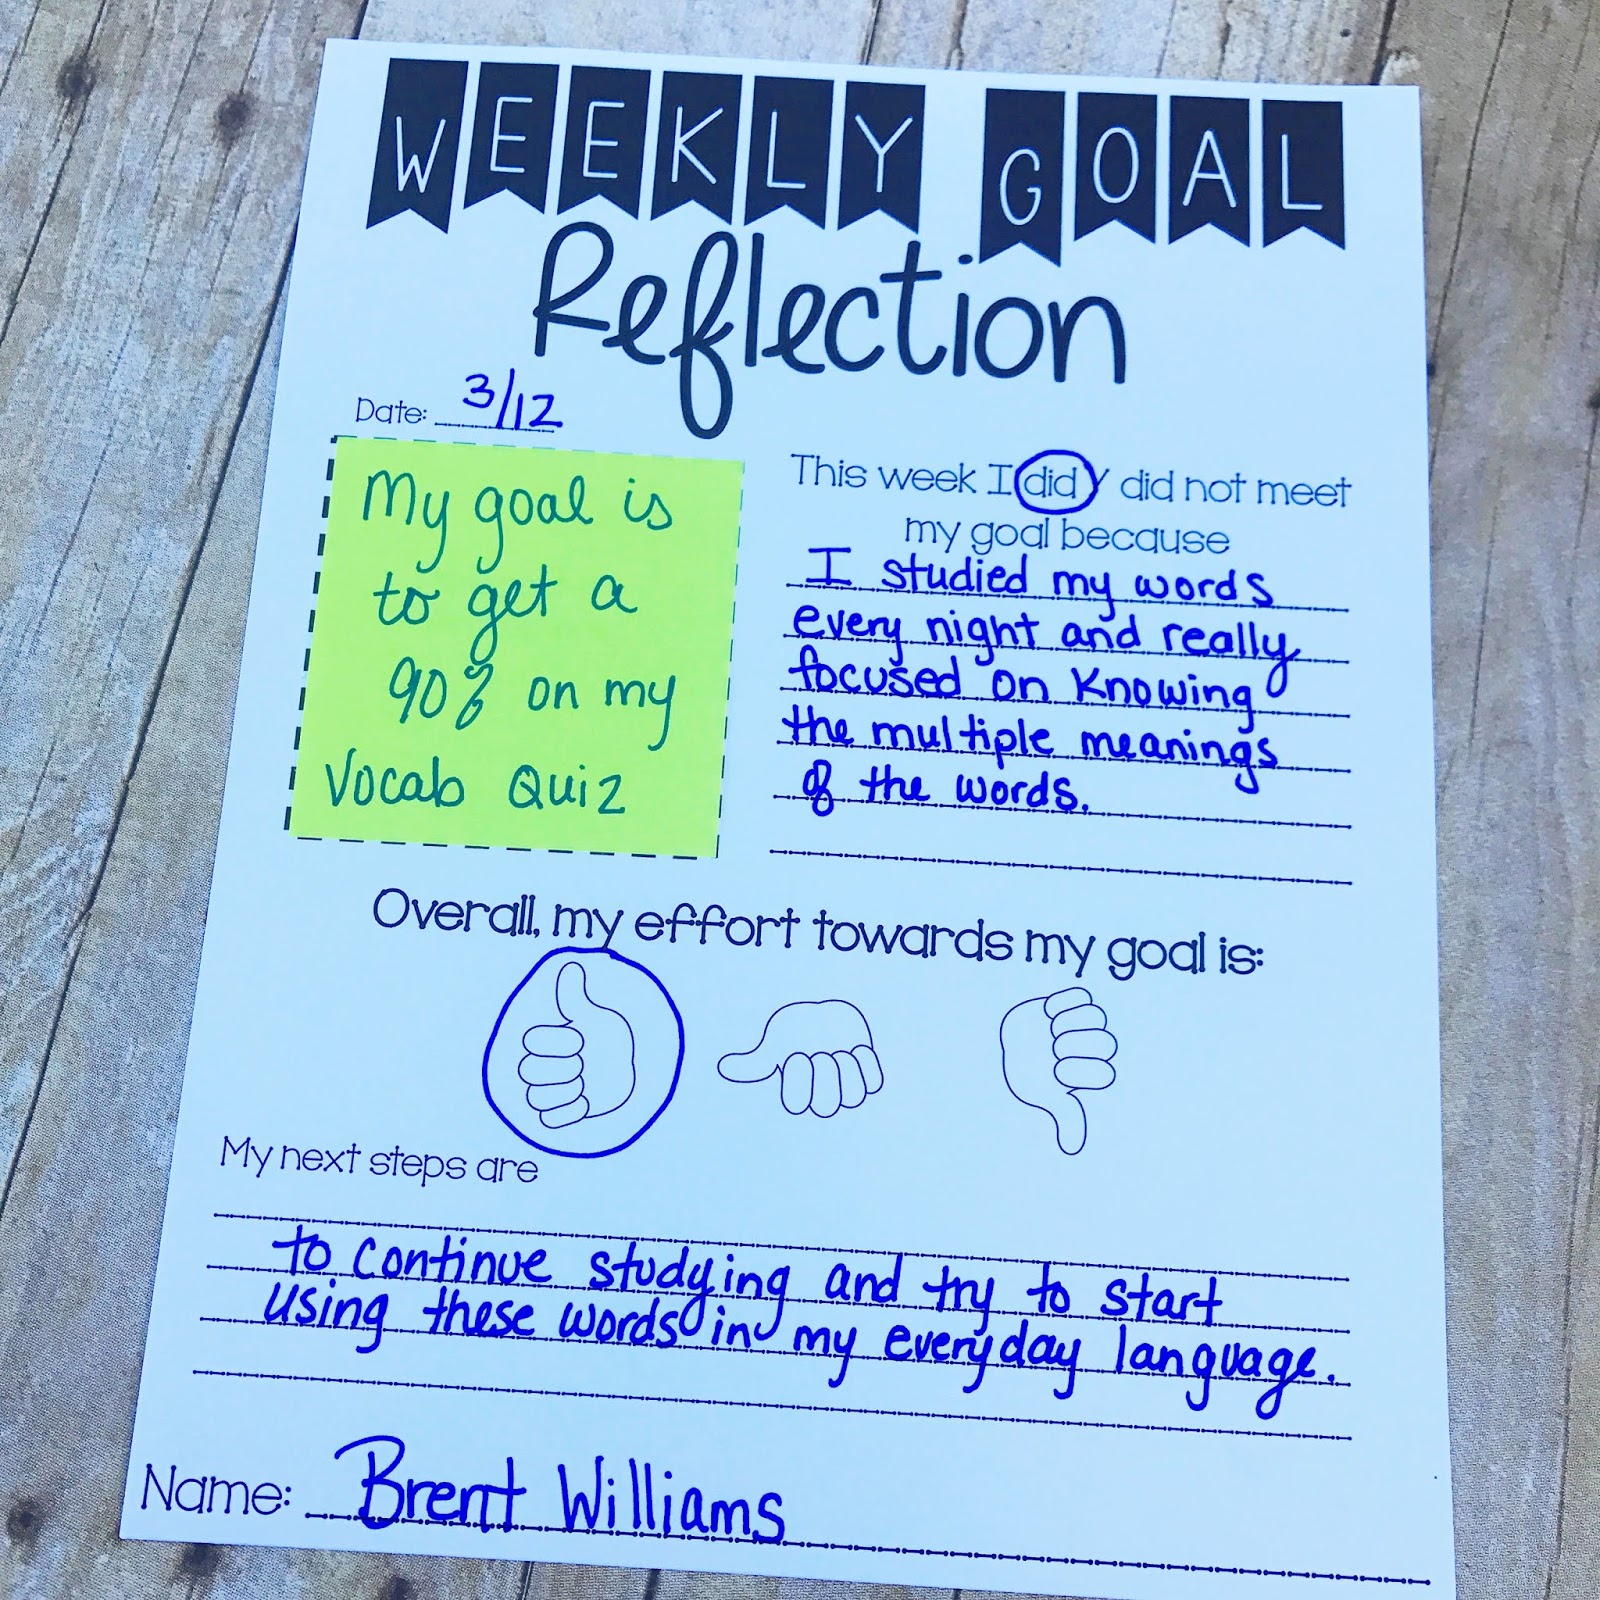 WEEKLY GOAL
Reflection
Date: 3/12
My goal is
to get a
90% on my
Vocab Quiz
This week I did / did not meet
my goal because
I studied my words
every night and really
focused on knowing
the multiple meanings
of the words.
Overall, my effort towards my goal is:
My next steps are
to continue studying and try to start
using these words in my everyday language.
Name: Brent Williams